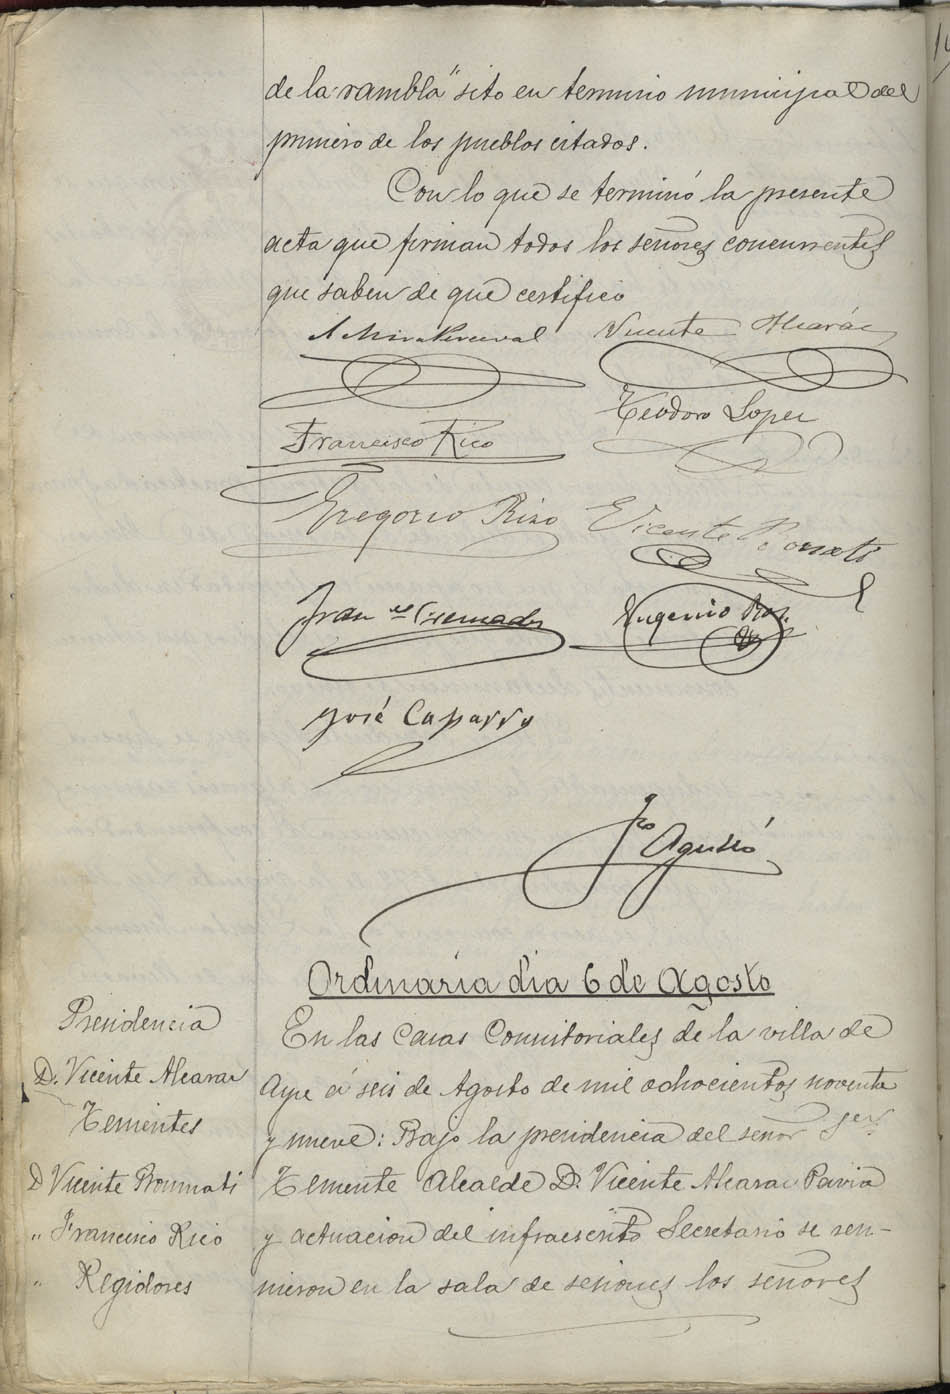 de la rambla" sito en termino municipal del
primero de los pueblos citados.
Con lo que se terminó la presente
acta que firman todos los señores concurrentes
que saben de que certifico
A Mira Perceval
Vicente Alcaráz
Teodoro Lopez
Francisco Rico
Gregorio Rizo
Vicente Bonmati
Fran.co Cremades
Eugenio
José Caparrós
Fco Agulló
Ordinaria dia 6 de Agosto
Presidencia
D. Vicente Alcaraz
Tenientes
D Vicente Bonmati
" Francisco Rico
" Regidores
En las Casas Consistoriales de la villa de
Aspe á seis de Agosto de mil ochocientos noventa
y nueve: Bajo la presidencia del señor 1er
Teniente Alcalde D. Vicente Alcaraz Pavia
y actuacion del infraescrito Secretario se reu-
nieron en la sala de sesiones los señores